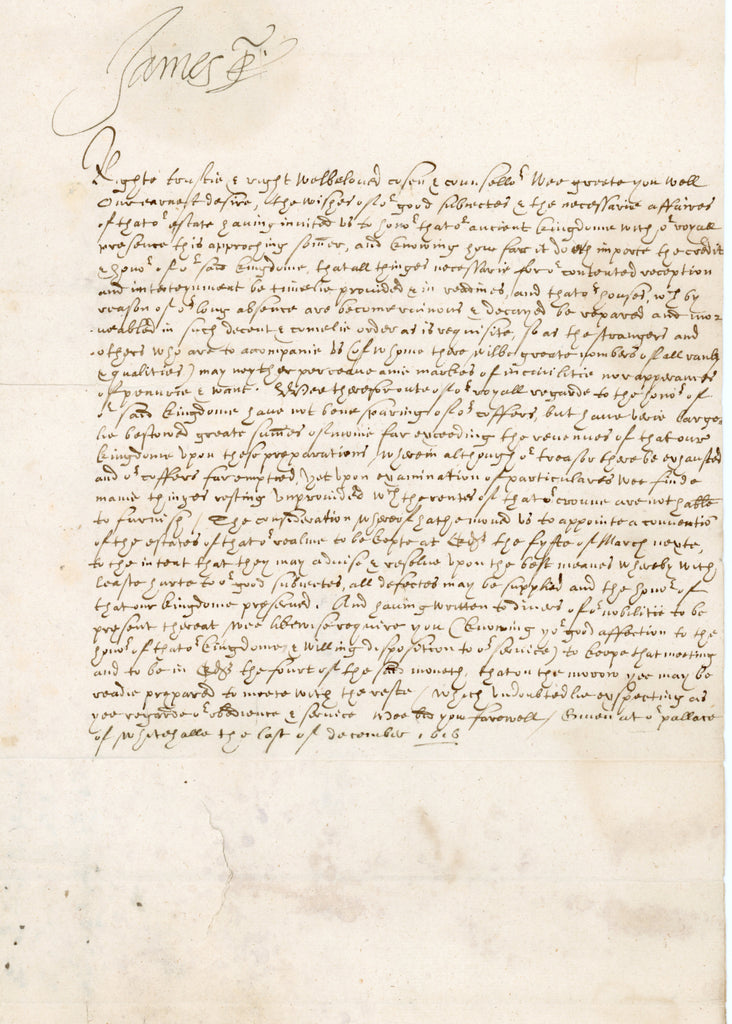 James R
Righte trustie & right welbeloued cosen & counsello^r Wee greete you well
Our earnest desire, the wishes of o^r good subiectes & the necessarie affaires
of that o^r estate having invited vs to hono^r that o^r ancient kingdome with o^r royall
presence this approching somer, and knowing how farr it doeth importe the credit
& hono^r of o^r said kingdome, that all thinges necessarie for o^r contented reception
and intertenment be timelie provided & in readines, and that o^r houses, w^ch by
reason of o^r long absence are become ruinous & decayed be repared and mo-
veabled in such decent & comelie order as is requisite, so as the strangers and
others who are to accompanie vs (of whome there wilbe greate nombers of all rankes
& qualities) may neyther perceaue anie markes of inciuilitie nor apperances
of penurie & want. Wee therefor out of o^r royall regarde to the hono^r of
o^r said kingdome have not bene sparing of o^r coffers, but have verie large-
lie bestowed greate sumes of monie far exceeding the revenues of that our
kingdome vpon these preparations, wherein although o^r treasor there be exhausted
and o^r coffers far emptied, yet vpon examination of particulares wee finde
manie thinges resting vnprovided w^ch the rentes of that o^r croune are not hable
to furnish / The consideration whereof hathe moued vs to appointe a conuention
of the estates of that o^r realme to be kepte at the fyfte of March nexte,
to the intent that they may aduise & resolue vpon the best meanes whereby with
leaste harte to o^r good subiectes, all defectes may be supplied and the hono^r of
that our kingdome preserued. And having written to diuers of o^r nobilitie to be
present thereat, wee likewise require you (knowing yo^r good affection to the
hono^r of that o^r kingdome, & willing disposition to o^r service) to keepe that meeting
and to be in the fourt of the said moneth, that on the morrow yee may be
readie prepared to meete with the reste / which vndoubtedlie expecting as
yee regarde o^r obedience & service Wee bid you farewell / Giuen at o^r pallace
of Whitehalle the last of december 1616